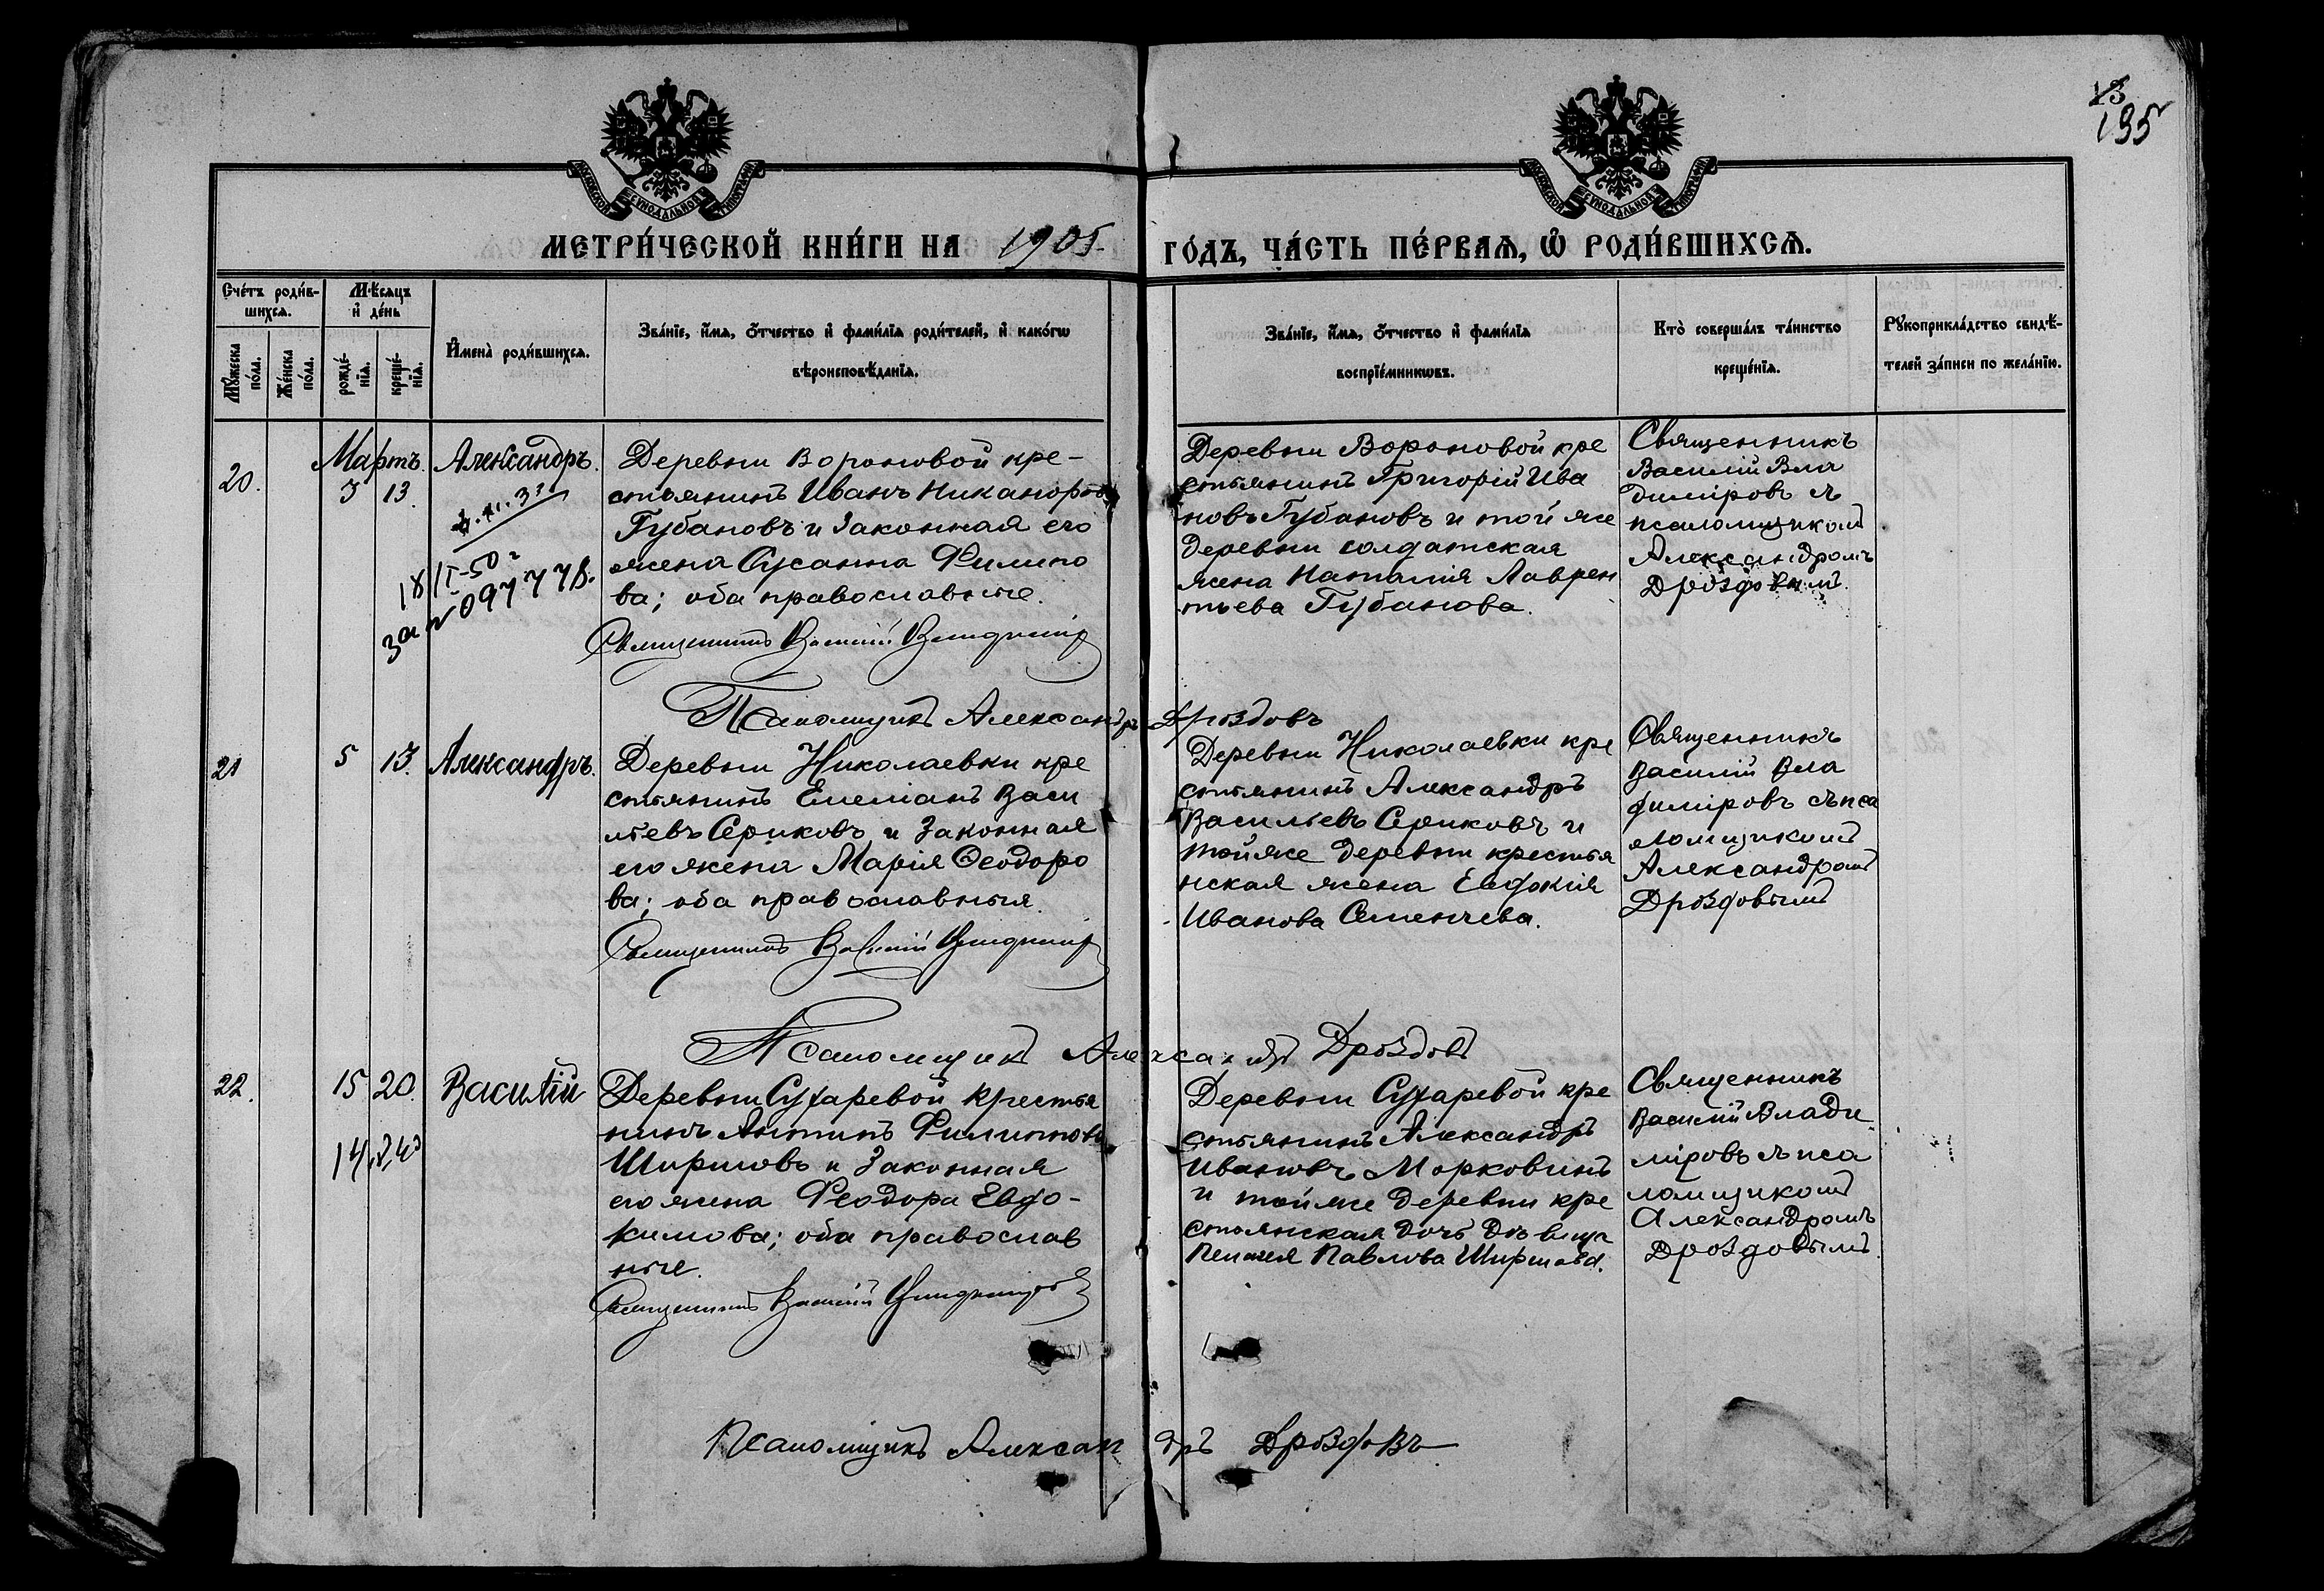 13
195
МОСКОВСКОЙ СѴНОДАЛЬНОЙ ТИПОГРАФІИ
МОСКОВСКОЙ СѴНОДАЛЬНОЙ ТИПОГРАФІИ
МЕТРИ́ЧЕСКОЙ КНИ́ГИ НА 1905. ГО́ДЪ, ЧА́СТЬ ПЕ́РВАѦ, Ѡ҆ РОДИ́ВШИХСѦ.
Счéтъ роди́в-
шихсѧ.
Мѣ́сѧцъ
и҆ де́нь
Мꙋ́жеска по́ла.
Же́нска по́ла.
рожде́-
нїѧ.
креще́-
нїѧ.
И҆мена̀ роди́вшихсѧ.
Зва́нїе, и҆́мѧ, ѻ҆́тчество и҆ фами́лїѧ роди́телей, и҆ како́гѡ
вѣроисповѣ́данїѧ.
Зва́нїе, и҆́мѧ, ѻ҆́тчество и҆ фами́лїѧ
воспрїе́мникѡвъ.
Кто̀ соверша́лъ та́инство
креще́нїѧ.
Рꙋкоприкла́дство свидѣ́-
телей за́писи по жела́нїю.
20.
Мартъ.
3 13.
Александръ.
18/I-50 г
за № 097778.
Деревни Вороновой кре-
стьянинъ Иванъ Никаноровъ
Губановъ и законная его
жена Сусанна Филипо
ва; оба православные.
Священникъ Василій Владиміровъ
Псаломщикъ Александръ Дроздовъ
Деревни Вороновой кре
стьянинъ Григорій Ива
новъ Губановъ и той же
деревни солдатская
жена Наталія Лаврен
тьева Губанова.
Священникъ
Василій Вла
диміровъ съ
псаломщикомъ
Александромъ
Дроздовымъ.
21
5 13.
Александръ.
Деревни Николаевки кре
стьянинъ Емеліанъ Васи
льевъ Сериковъ и законная
его жена Марія Ѳеодоро
ва; оба православныя.
Священникъ Василій Владиміровъ
Псаломщикъ Александръ Дроздовъ
Деревни Николаевки кре
стьянинъ Александръ
Васильевъ Сериковъ и
той же деревни крестья
нская жена Евдокія
Иванова Семенчева.
Священникъ
Василій Вла
диміровъ съ пса
ломщикомъ
Александромъ
Дроздовымъ
22.
15 20.
Василій
Деревни Сухаревой крестья
нинъ Антипъ Филиповъ
Ширшовъ и законная
его жена Ѳеодора Евдо-
кимова; оба православ
ные.
Священникъ Василій Владиміровъ
Псаломщикъ Александръ Дроздовъ
Деревни Сухаревой кре
стьянинъ Александръ
Ивановъ Морковинъ
и той же деревни кре
стьянская дочь дѣвица
Пелагея Павлова Ширшова.
Священникъ
Василій Влади
міровъ съ пса
ломщикомъ
Александромъ
Дроздовымъ